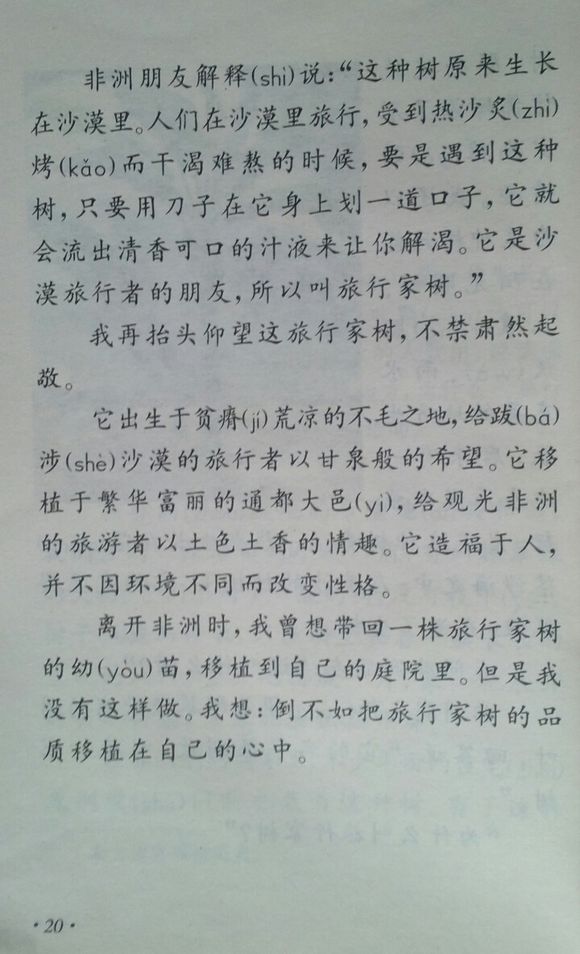 非洲朋友解释(shì)说:“这种树原来生长
在沙漠里。人们在沙漠里旅行,受到热沙炙(zhì)
烤(kǎo)而干渴难熬的时候,要是遇到这种
树,只要用刀子在它身上划一道口子,它就
会流出清香可口的汁液来让你解渴。它是沙
漠旅行者的朋友,所以叫旅行家树。”
我再抬头仰望这旅行家树,不禁肃然起
敬。
它出生于贫瘠(jí)荒凉的不毛之地,给跋(bá)
涉(shè)沙漠的旅行者以甘泉般的希望。它移
植于繁华富丽的通都大邑(yì),给观光非洲
的旅游者以土色土香的情趣。它造福于人,
并不因环境不同而改变性格。
离开非洲时,我曾想带回一株旅行家树
的幼(yòu)苗,移植到自己的庭院里。但是我
没有这样做。我想:倒不如把旅行家树的品
质移植在自己的心中。
·20·